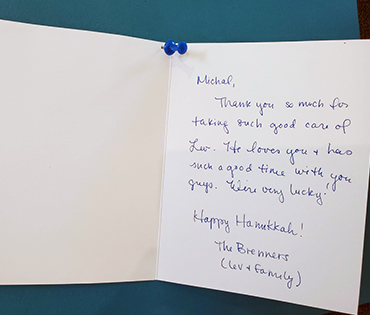 Michal,
Thank you so much for
taking such good care of
Lev. He loves you + has
such a good time with you
guys. We're very lucky.
Happy Hanukkah!
The Brenners
(Lev + Family)